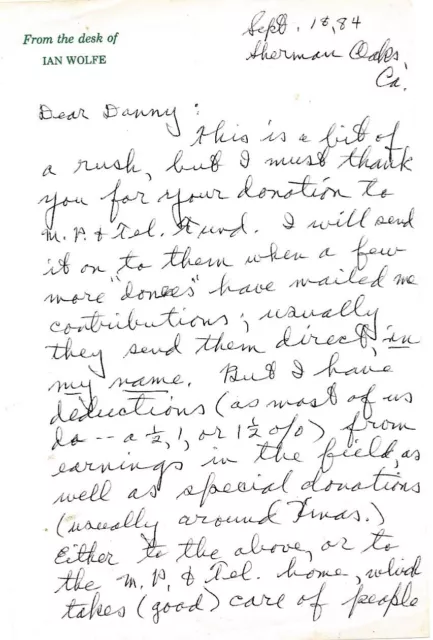 From the desk of
IAN WOLFE
Sept. 18, 84
Sherman Oaks,
Ca.
Dear Danny:
This is a bit of
a rush, but I must thank
you for your donation to
M. P. & Tel. Fund. I will send
it on to them when a few
more "donees" have mailed me
contributions; usually
they send them direct, in
my name. But I have
deductions (as most of us
do -- a ½, 1, or 1½ %) from
earnings in the field, as
well as special donations
(usually around Xmas.)
Either to the above, or to
the M. P. & Tel. home, which
takes (good) care of people